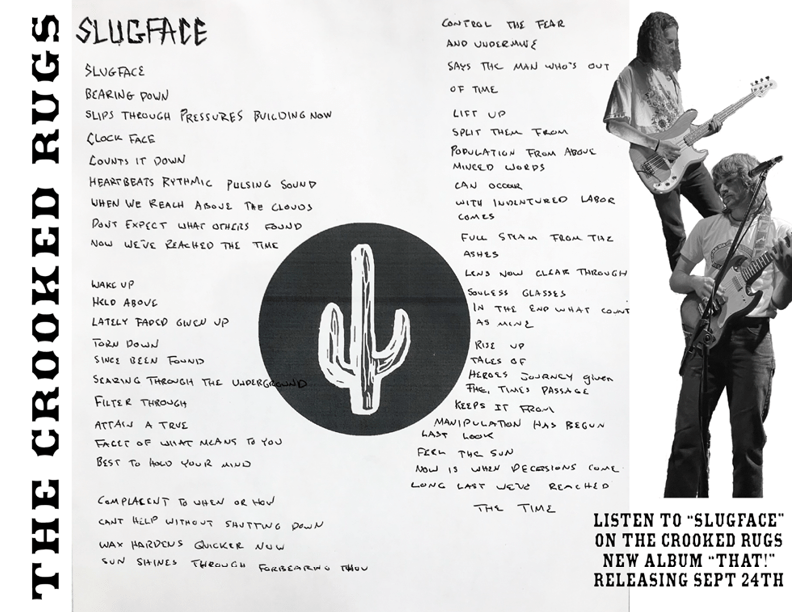 THE CROOKED RUGS
SLUGFACE
SLUGFACE
BEARING DOWN
SLIPS THROUGH PRESSURES BUILDING NOW
CLOCK FACE
COUNTS IT DOWN
HEARTBEATS RYTHMIC PULSING SOUND
WHEN WE REACH ABOVE THE CLOUDS
DONT EXPECT WHAT OTHERS FOUND
NOW WE'VE REACHED THE TIME
WAKE UP
HELD ABOVE
LATELY FADED GIVEN UP
TORN DOWN
SINCE BEEN FOUND
SEARING THROUGH THE UNDERGROUND
FILTER THROUGH
ATTAIN A TRUE
FACET OF WHAT MEANS TO YOU
BEST TO HOLD YOUR MIND
COMPLACENT TO WHEN OR HOW
CANT HELP WITHOUT SHUTTING DOWN
WAX HARDENS QUICKER NOW
SUN SHINES THROUGH FORBEARING THOU
CONTROL THE FEAR
AND UNDERMINE
SAYS THE MAN WHO'S OUT
OF TIME
LIFT UP
SPLIT THEM FROM
POPULATION FROM ABOVE
MINCED WORDS
CAN OCCUR
WITH INDENTURED LABOR
COMES
FULL STEAM FROM THE
ASHES
LENS NOW CLEAR THROUGH
SOULESS GLASSES
IN THE END WHAT COUNT
AS MINE
RISE UP
TALES OF
HEROES JOURNEY given
THE, TIMES PASSAGE
KEEPS IT FROM
MANIPULATION HAS BEGUN
LAST LOOK
FEEL THE SUN
NOW IS WHEN DECESIONS COME
LONG LAST WE'VE REACHED
THE TIME
LISTEN TO "SLUGFACE"
ON THE CROOKED RUGS
NEW ALBUM "THAT!"
RELEASING SEPT 24TH